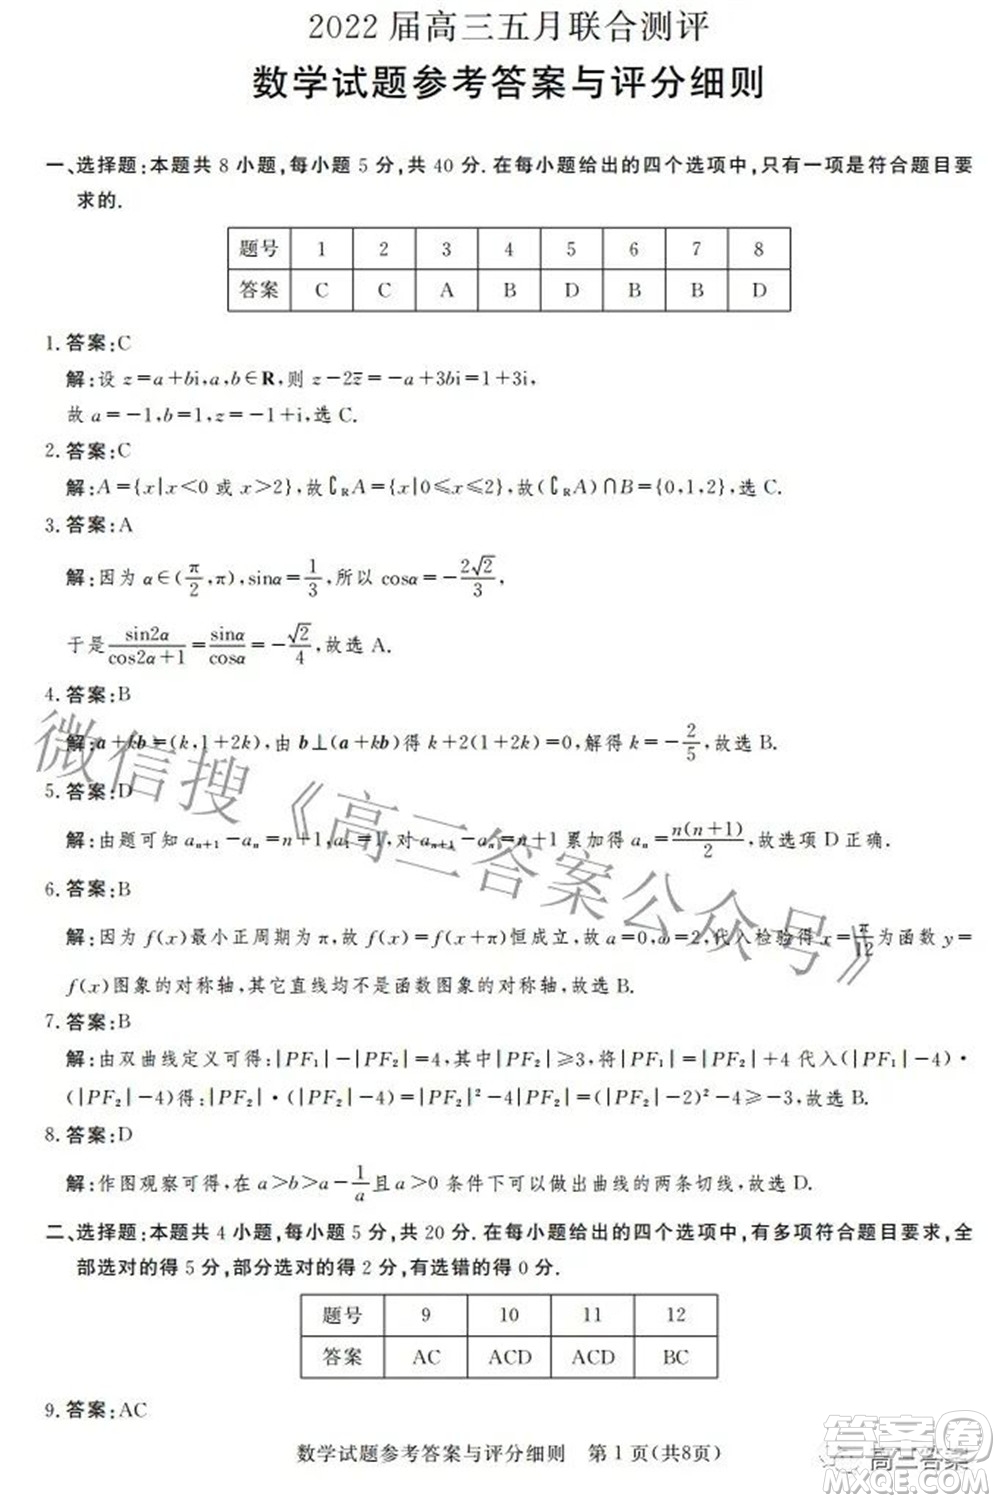 2022 届高三五月联合测评
数学试题参考答案与评分细则
一、选择题:本题共 8 小题,每小题 5 分,共 40 分.在每小题给出的四个选项中,只有一项是符合题目要
求的.
题号 1 2 3 4 5 6 7 8
答案 C C A B D B B D
1. 答案:C
解:设 z=a+bi,a,b∈R,则 z-2z̅=-a+3bi=1+3i,
故 a=-1,b=1,z=-1+i,选 C.
2. 答案:C
解:A={x|x<0 或 x>2},故∁RA={x|0≤x≤2},故(∁RA)∩B={0,1,2},选 C.
3. 答案:A
解:因为 α∈(π/2,π),sinα=1/3,所以 cosα=-2√2/3,
于是 sin2α/(cos2α+1)=sinα/cosα=-√2/4,故选 A.
4. 答案:B
解:a+kb=(k,1+2k),由 b⊥(a+kb)得 k+2(1+2k)=0,解得 k=-2/5,故选 B.
5. 答案:D
解:由题可知 aₙ₊₁-aₙ=n+1,a₁=1,对 aₙ₊₁-aₙ=n+1 累加得 aₙ=n(n+1)/2,故选项 D 正确.
6. 答案:B
解:因为 f(x)最小正周期为 π,故 f(x)=f(x+π)恒成立,故 a=0,ω=2,代入检验得 x=π/12为函数 y=
f(x)图象的对称轴,其它直线均不是函数图象的对称轴,故选 B.
7. 答案:B
解:由双曲线定义可得:|PF₁|-|PF₂|=4,其中|PF₂|≥3,将|PF₁|=|PF₂|+4 代入(|PF₁|-4)·
(|PF₂|-4)得:|PF₂|·(|PF₂|-4)=|PF₂|²-4|PF₂|=(|PF₂|-2)²-4≥-3,故选 B.
8. 答案:D
解:作图观察可得,在 a>b>a-1/a且 a>0 条件下可以做出曲线的两条切线,故选 D.
二、选择题:本题共 4 小题,每小题 5 分,共 20 分.在每小题给出的四个选项中,有多项符合题目要求,全
部选对的得 5 分,部分选对的得 2 分,有选错的得 0 分.
题号 9 10 11 12
答案 AC ACD ACD BC
9. 答案:AC
数学试题参考答案与评分细则 第 1 页(共8页)
微信搜《高三答案公众号》
高三答案
答案圈
MXQE.COM